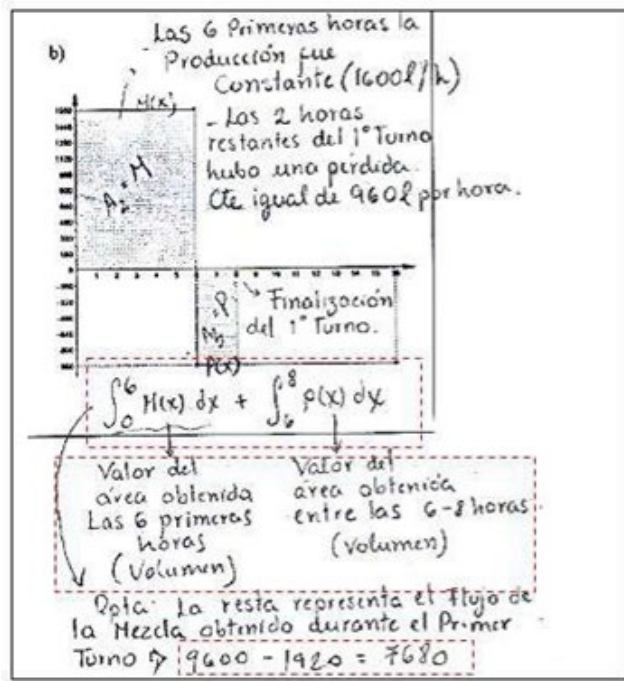 b)
Las 6 Primeras horas la
Producción fue
Constante (1600l/h)
M(x)
- Las 2 horas
restantes del 1° Turno
hubo una pérdida.
Cte igual de 960l por hora.
A₂ = M
0
1 2 3 4 5 6 7 8 9 10 11 12 13 14 15 16
A₃ = P
P(x)
Finalización
del 1° Turno.
∫₀⁶ M(x) dx + ∫₆⁸ p(x) dx
Valor del
área obtenida
Las 6 primeras
horas
(Volumen)
Valor del
área obtenida
entre las 6-8 horas
(Volumen)
Nota: La resta representa el Flujo de
la Mezcla obtenido durante el Primer
Turno ⇒ 9600 - 1920 = 7680